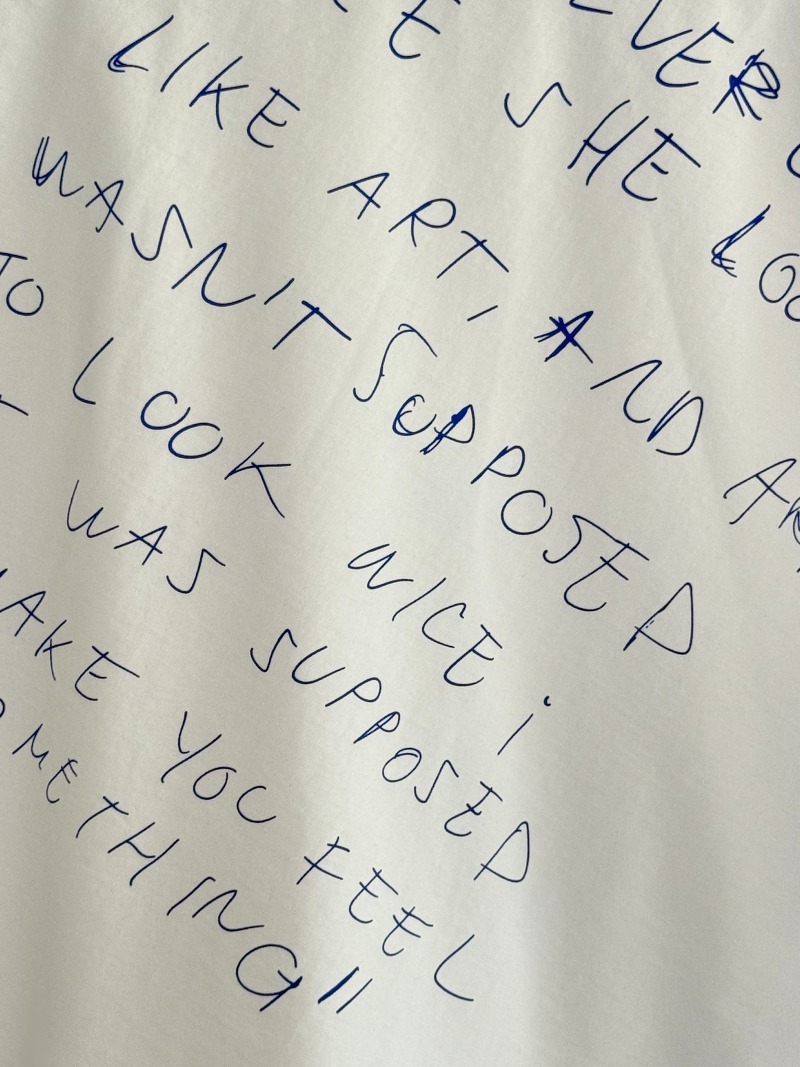 SHE
LIKE ART, AND
WASN'T SUPPOSED
TO LOOK NICE ;
WAS SUPPOSED
YOU FEEL
OMETHING"